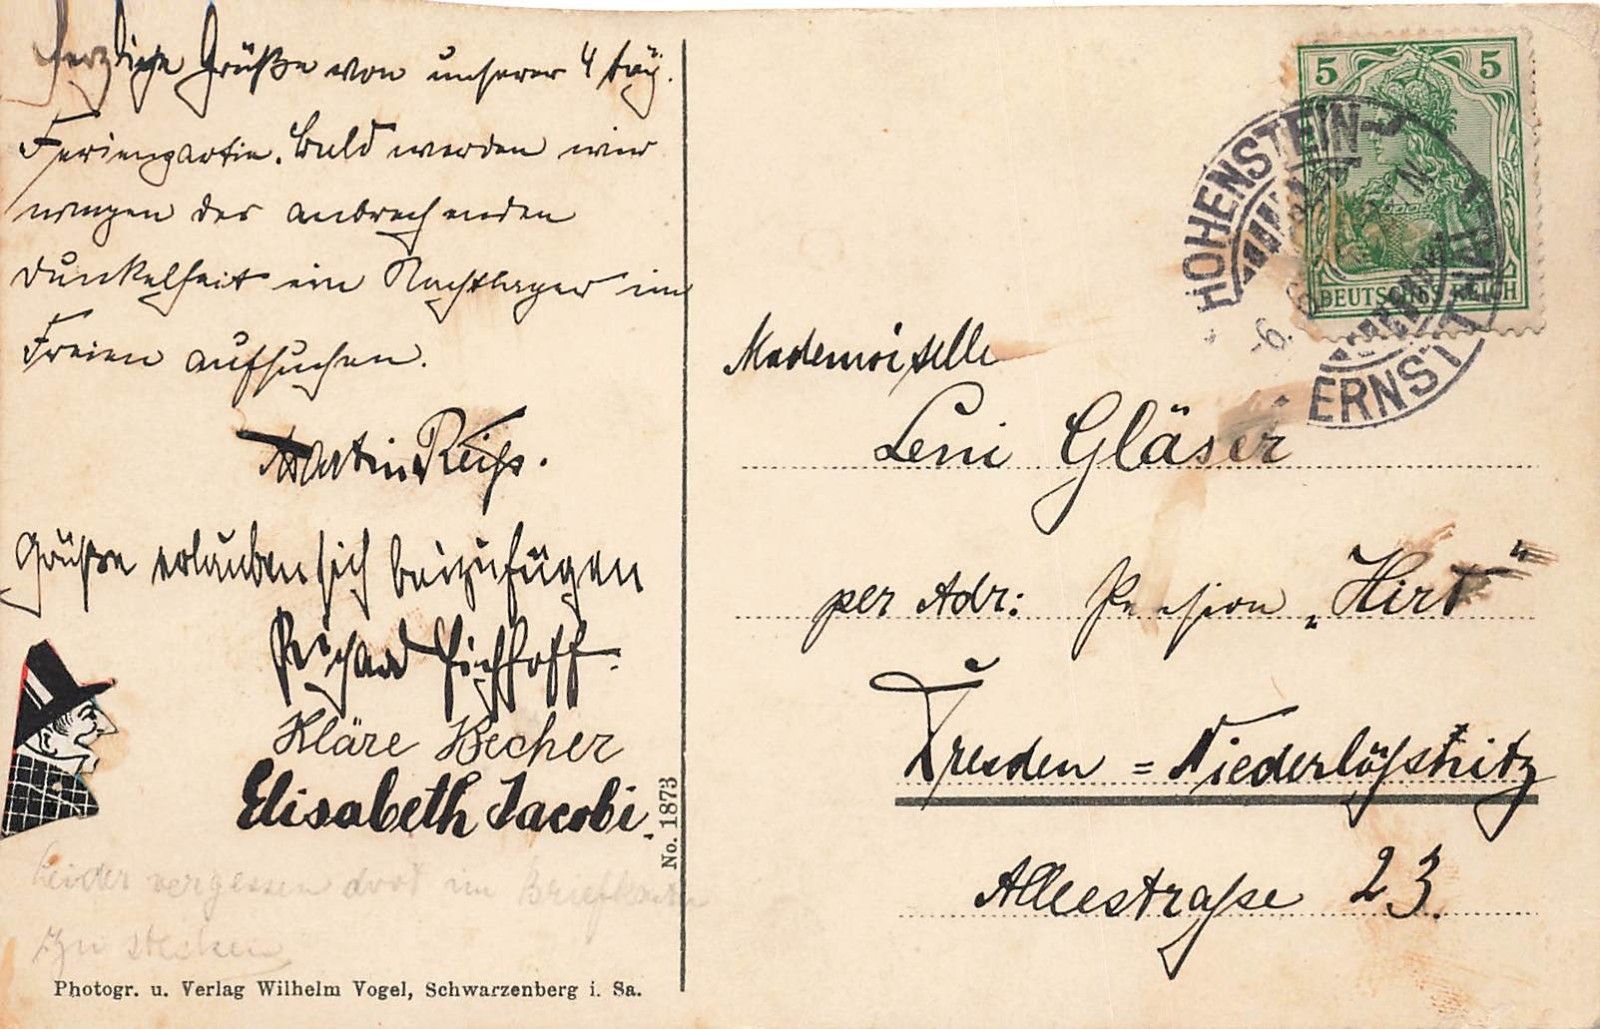 Herzliche Grüße von unserer 4 täg.
Ferienpartie. Bald werden wir
wegen der anbrechenden
Dunkelheit ein Nachtlager im
Freien aufsuchen.
Martin Reiß.
Grüße erlauben sich beizufügen
Richard Eichhoff.
Kläre Becher
Elisabeth Jacobi.
Leider vergessen dort im Briefkasten
zu stecken
Photogr. u. Verlag Wilhelm Vogel, Schwarzenberg i. Sa.
No. 1873
5 5
DEUTSCHES REICH
HOHENSTEIN-
ERNSTTHAL
Mademoiselle
Leni Gläser
per Adr: Pension „Hirt"
Dresden = Niederlößnitz
Alleestraße 23.